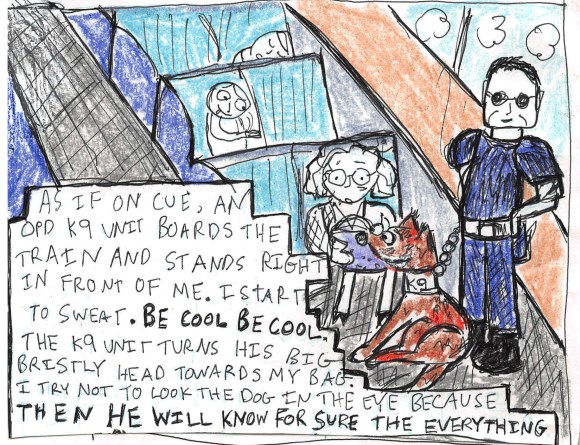 3
AS IF ON CUE, AN
OPD K9 UNIT BOARDS THE
TRAIN AND STANDS RIGHT
IN FRONT OF ME. I START
TO SWEAT. BE COOL BE COOL.
THE K9 UNIT TURNS HIS BIG
BRISTLY HEAD TOWARDS MY BAG.
I TRY NOT TO LOOK THE DOG IN THE EYE BECAUSE
THEN HE WILL KNOW FOR SURE THE EVERYTHING
K9